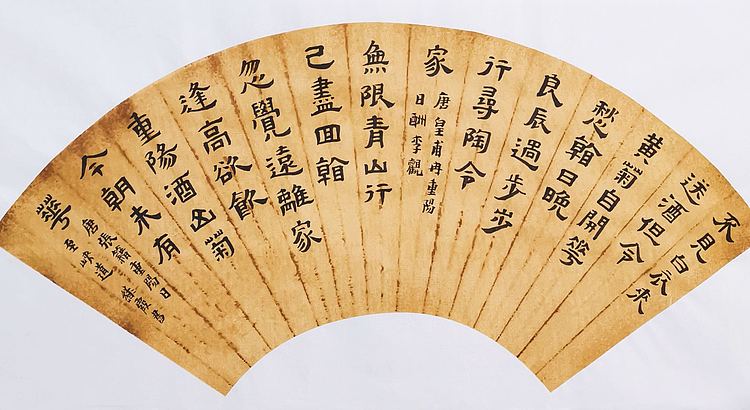 不見白衣來
送酒但令
黄菊自開華
愁看日晚
良辰過步步
行尋陶令
家
唐皇甫冉重陽
日酬李觀
無限青山行
已盡回看
忽覺遠離家
逢高欲飲
重陽酒山菊
今朝未有
華
唐張籍重陽日
至峽道
徐霞書